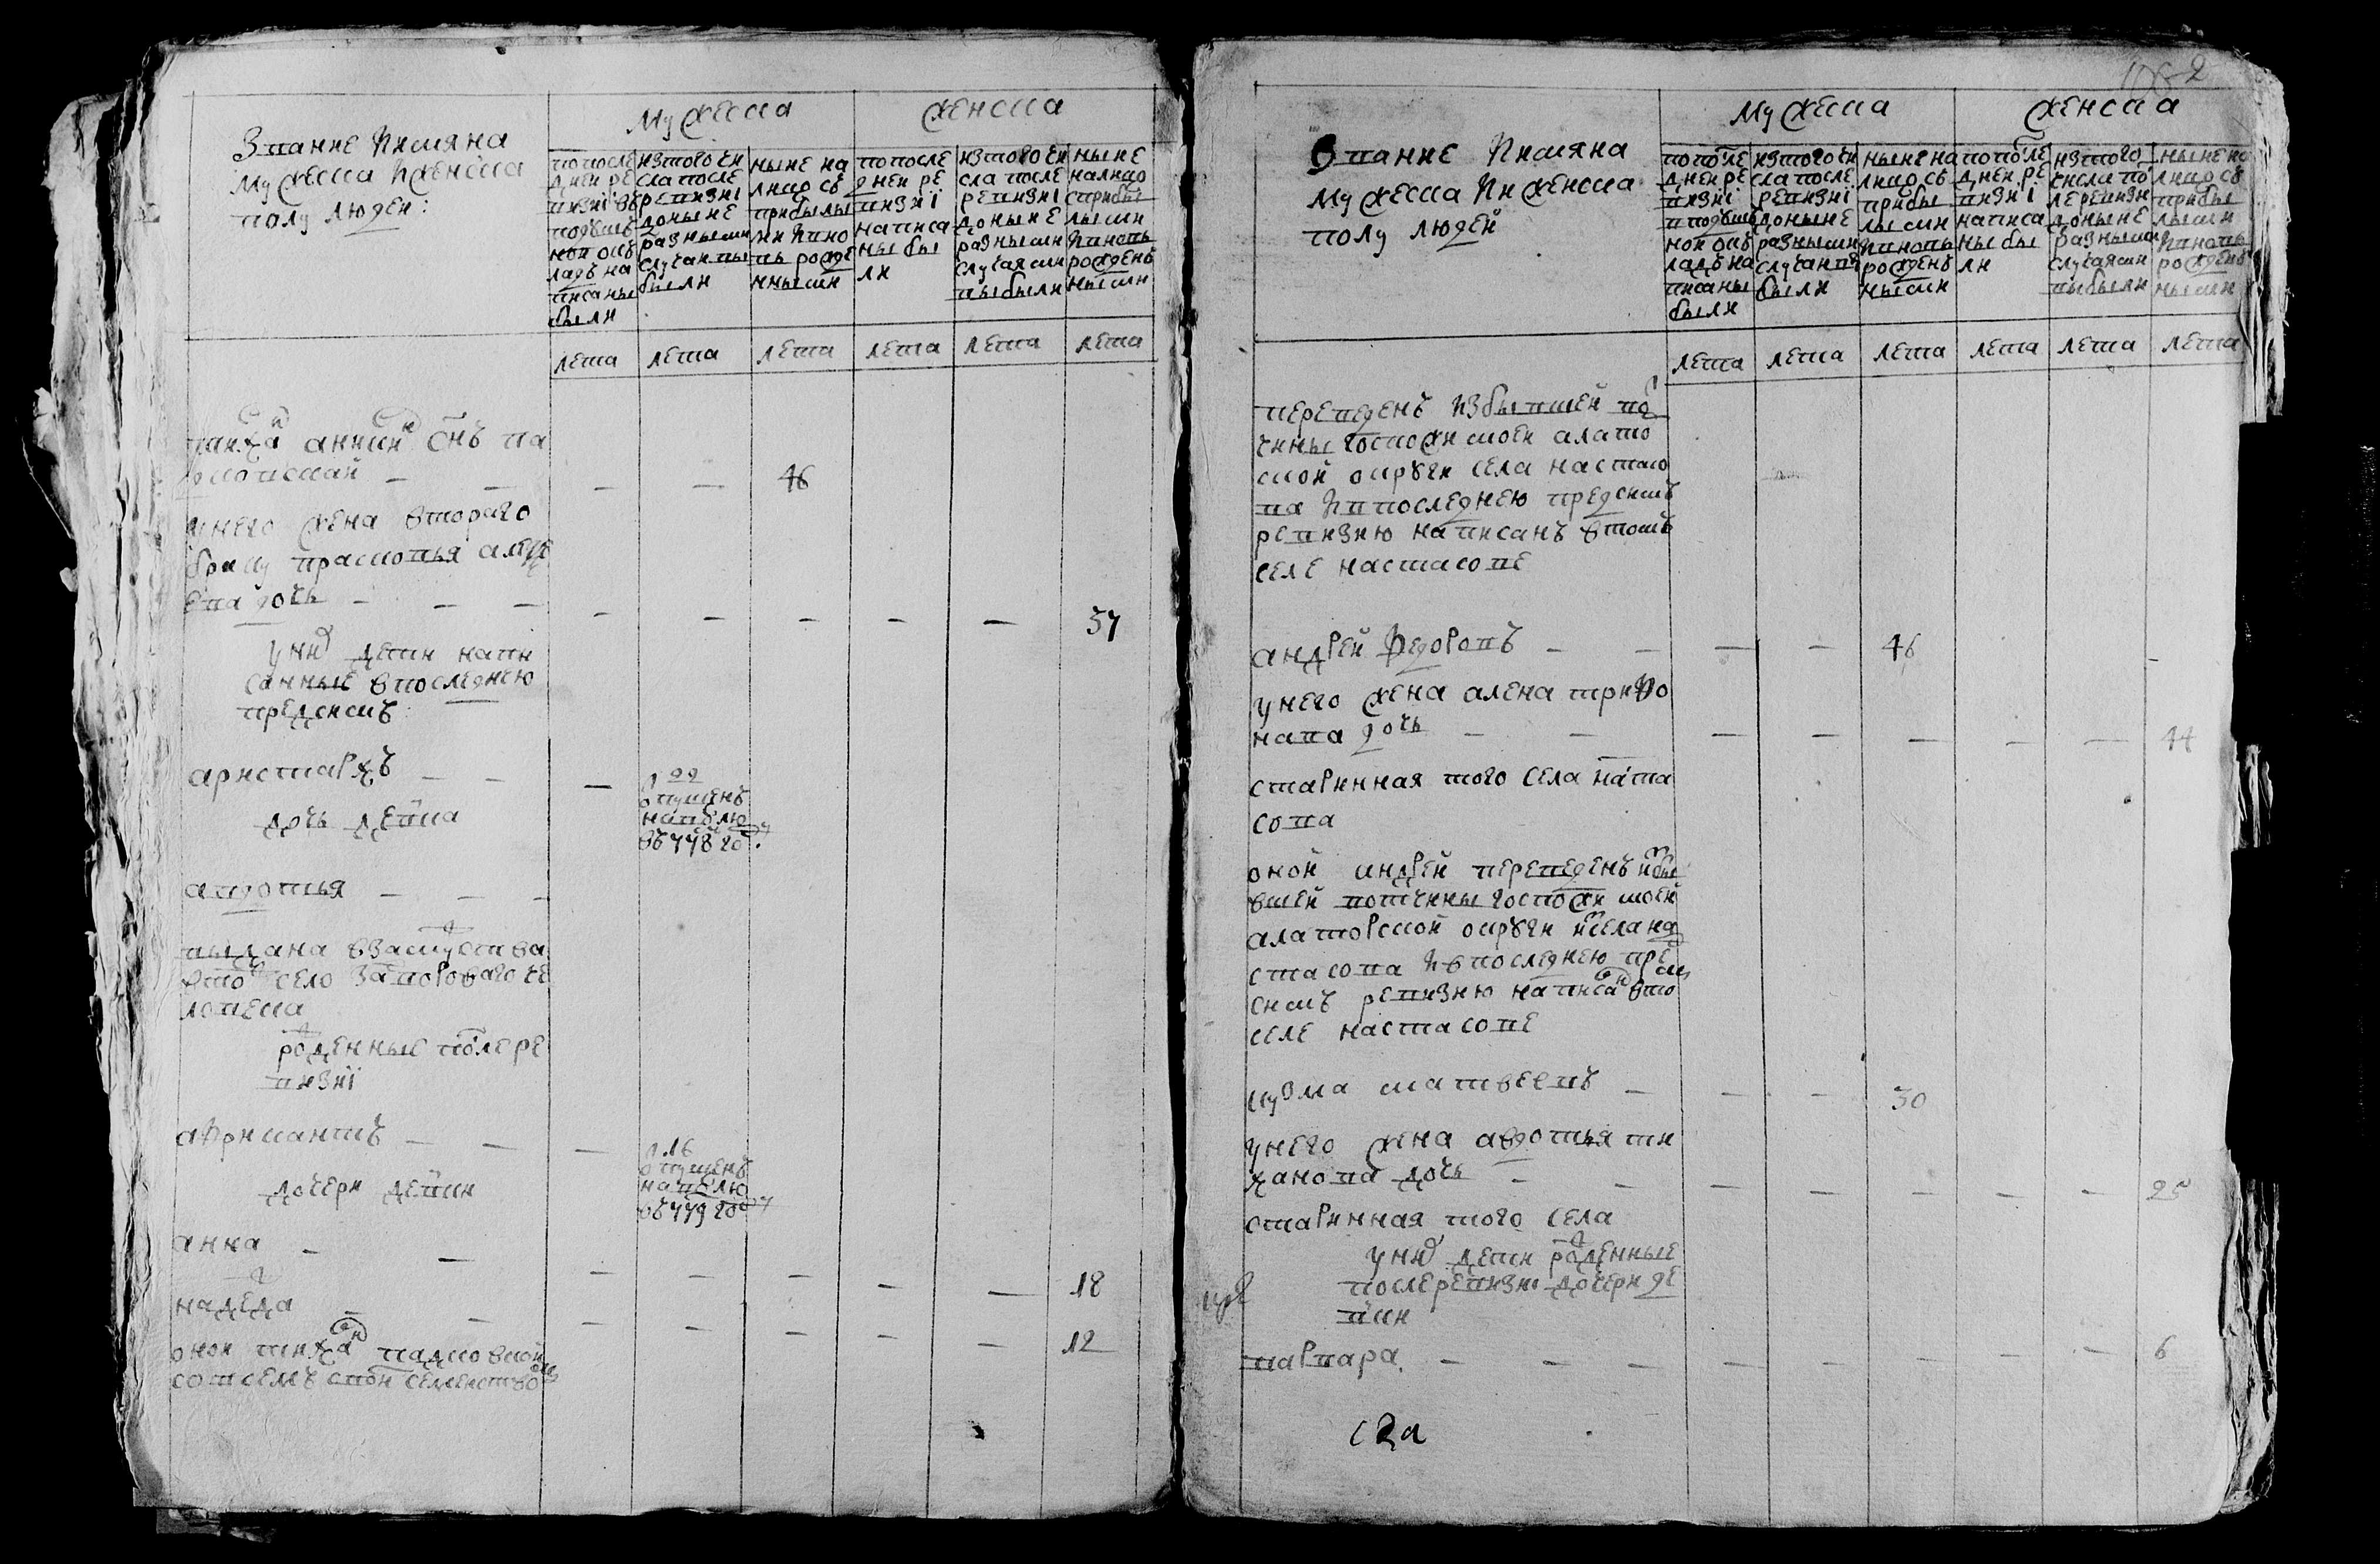 Звание и имяна
мужеска и женска
полу людей:
мужеска
женска
по после
дней ре
визиі въ
подуш
ной окъ
ладъ на
писаны
были
изтого чи
сла после
ревизиі
доныне
разными
случаи вы
были
ныне на
лицо съ
прибылы
ми и вно
вь рожде
нными
по после
дней ре
визиі
написа
ны бы
ли
изтого чи
сла после
ревизиі
доныне
разными
случаями
выбыли
ныне
налицо
сприбы
лыми
и вновь
рожденъ
ными
лета
лета
лета
лета
лета
лета
тихан аникин снъ ва
46
унего жена втораго
браку прасковья алеѯе
ева дочь
37
уних дети напи
санные впоследнею
пред симъ
аристархъ
22
отпущенъ
на волю
въ 778 году
дочь девка
авдотья
выдана взамуства
втож село заповаго че
ловека
рожденные после ре
визиі
афиксантъ
16
отпущенъ
на волю
въ 779 году
дочери девки
анна
18
надежда
12
оной тихан
совсемъ своим семействомъ
2
Звание и имяна
мужеска и женска
полу людей
мужеска
женска
по после
дней ре
визиі
вподуш
ной окъ
ладъ на
писаны
были
изтого чи
сла после
ревизиі
доныне
разными
случаи вы
были
ныне на
лицо съ
прибы
лыми
и вновь
рожденъ
ными
по после
дней ре
визиі
написа
ны бы
ли
изтого
числа по
сле ревизи
доныне
разными
случаями
выбыли
ныне на
лицо съ
прибы
лыми
и вновь
рожденъ
ными
лета
лета
лета
лета
лета
лета
переведенъ избывшей вот
чины госпожи моей алато
ской округи села настасо
ва и в последнею предсимъ
ревизию написанъ втомъ
селе настасове
андрей федоровъ
46
унего жена алена трифо
нава дочь
44
старинная того села наста
сова
оной андрей переведенъ избы
вшей вотчины госпожи моей
алаторской округи изсела на
стасова и впоследнею пред
симъ ревизию написан втом
селе настасове
кузма матвеевъ
30
унего жена авдотья ти
ханова дочь
25
старинная того села
уних дети рожденные
послеревизиі дочери де
вки
варвара
6